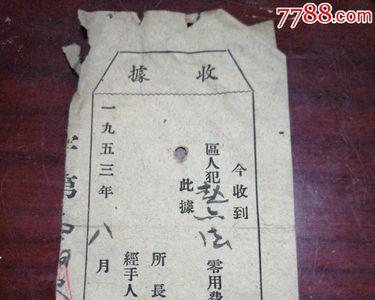 7788.com
收據
今收到
區人犯趙六法零用費
此據
所長
經手人
一九五三年八月
字第